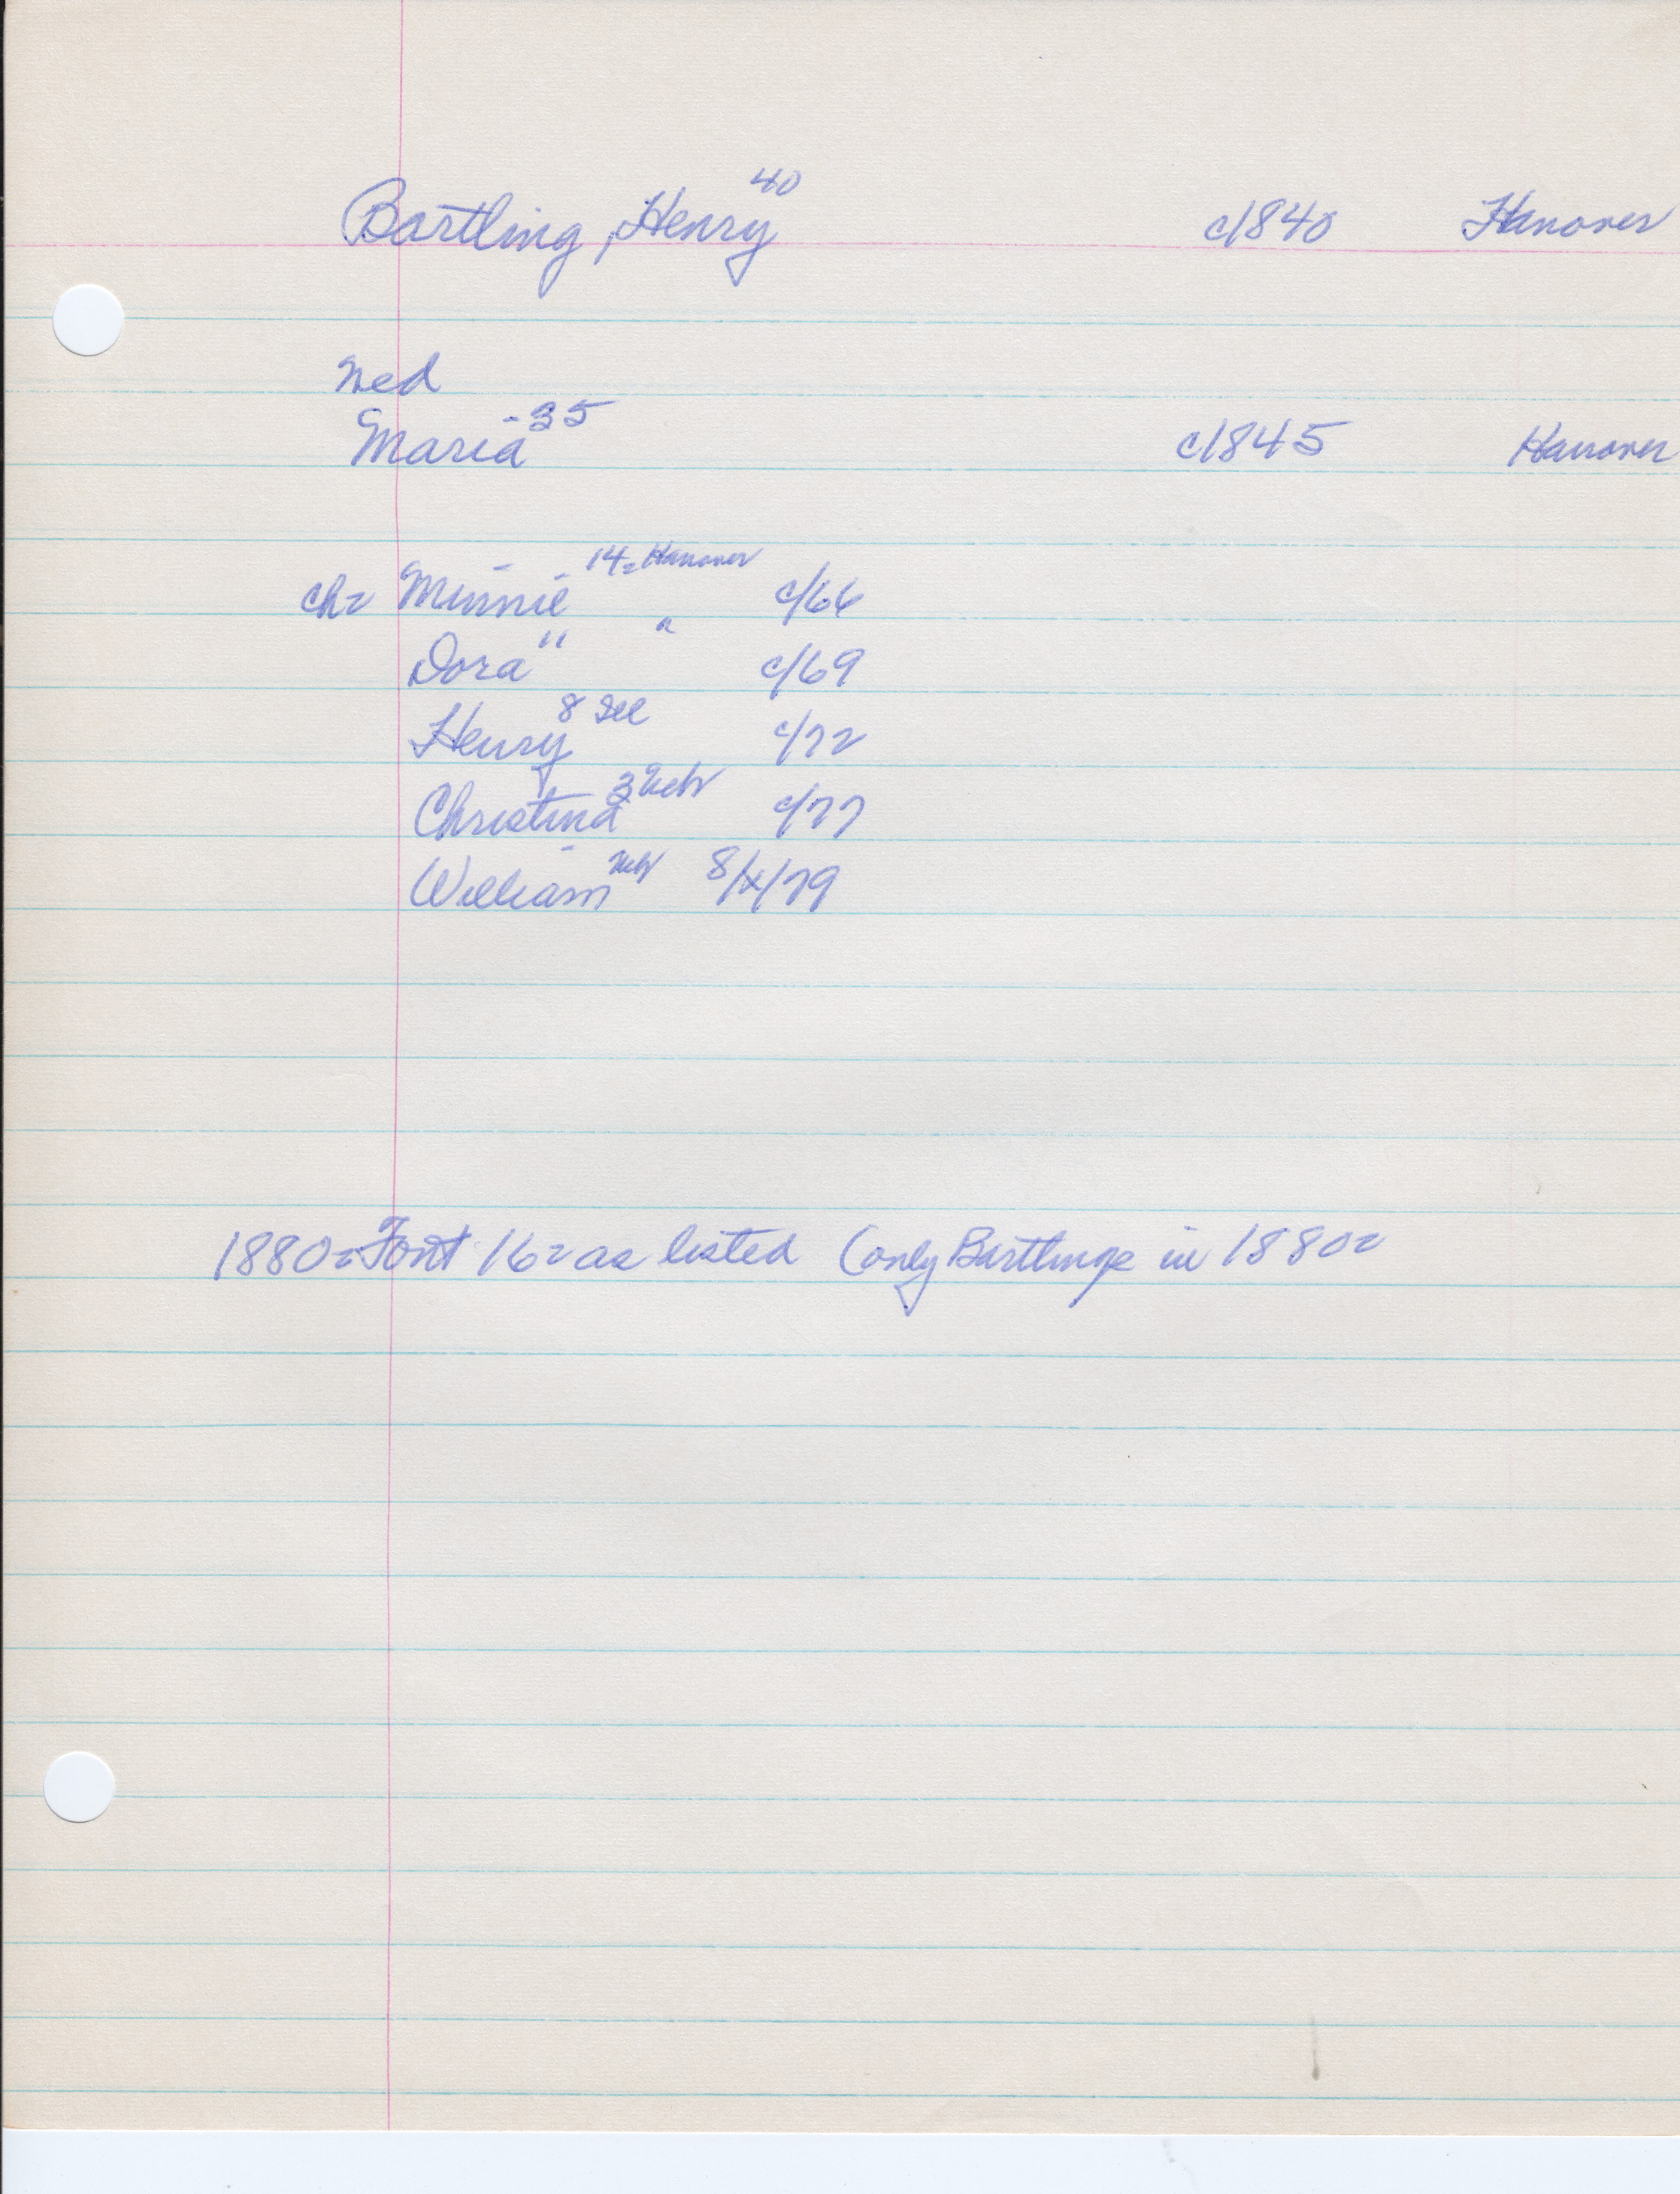 Bartling, Henry 40 c1840 Hanover
med
Maria -35 c1845 Hanover
ch= Minnie 14= Hanover c/66
Dora 11 " c/69
Henry 8 Ill c/72
Christina 3 Neb c/77
William Neb 8/x/79
1880= Font 16= as listed (only Bartlings in 1880=